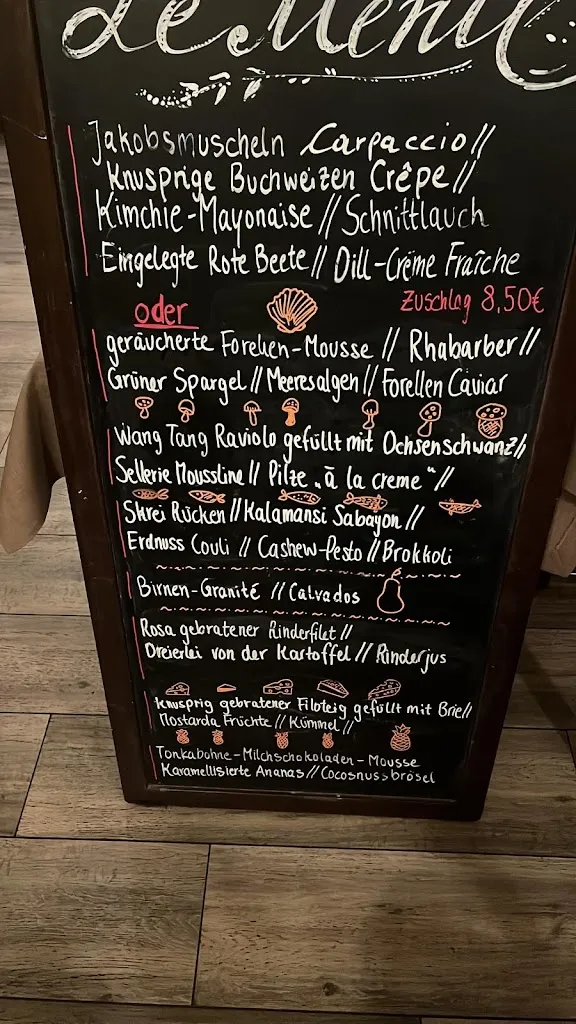 Le Menu
Jakobsmuscheln Carpaccio //
Knusprige Buchweizen Crêpe //
Kimchie-Mayonaise // Schnittlauch
Eingelegte Rote Beete // Dill-Crème Fraîche
Zuschlag 8,50€
oder
geräucherte Forellen-Mousse // Rhabarber //
Grüner Spargel // Meeresalgen // Forellen Caviar
Wang Tang Raviolo gefüllt mit Ochsenschwanz //
Sellerie Mousseline // Pilze „à la creme" //
Skrei Rücken // Kalamansi Sabayon //
Erdnuss Couli // Cashew-Pesto // Brokkoli
Birnen-Granité // Calvados
Rosa gebratener Rinderfilet //
Dreierlei von der Kartoffel // Rinderjus
Knusprig gebratener Filoteig gefüllt mit Brie //
Mostarda Früchte // Kümmel //
Tonkabohne-Milchschokoladen-Mousse
Karamellisierte Ananas // Cocosnussbrösel